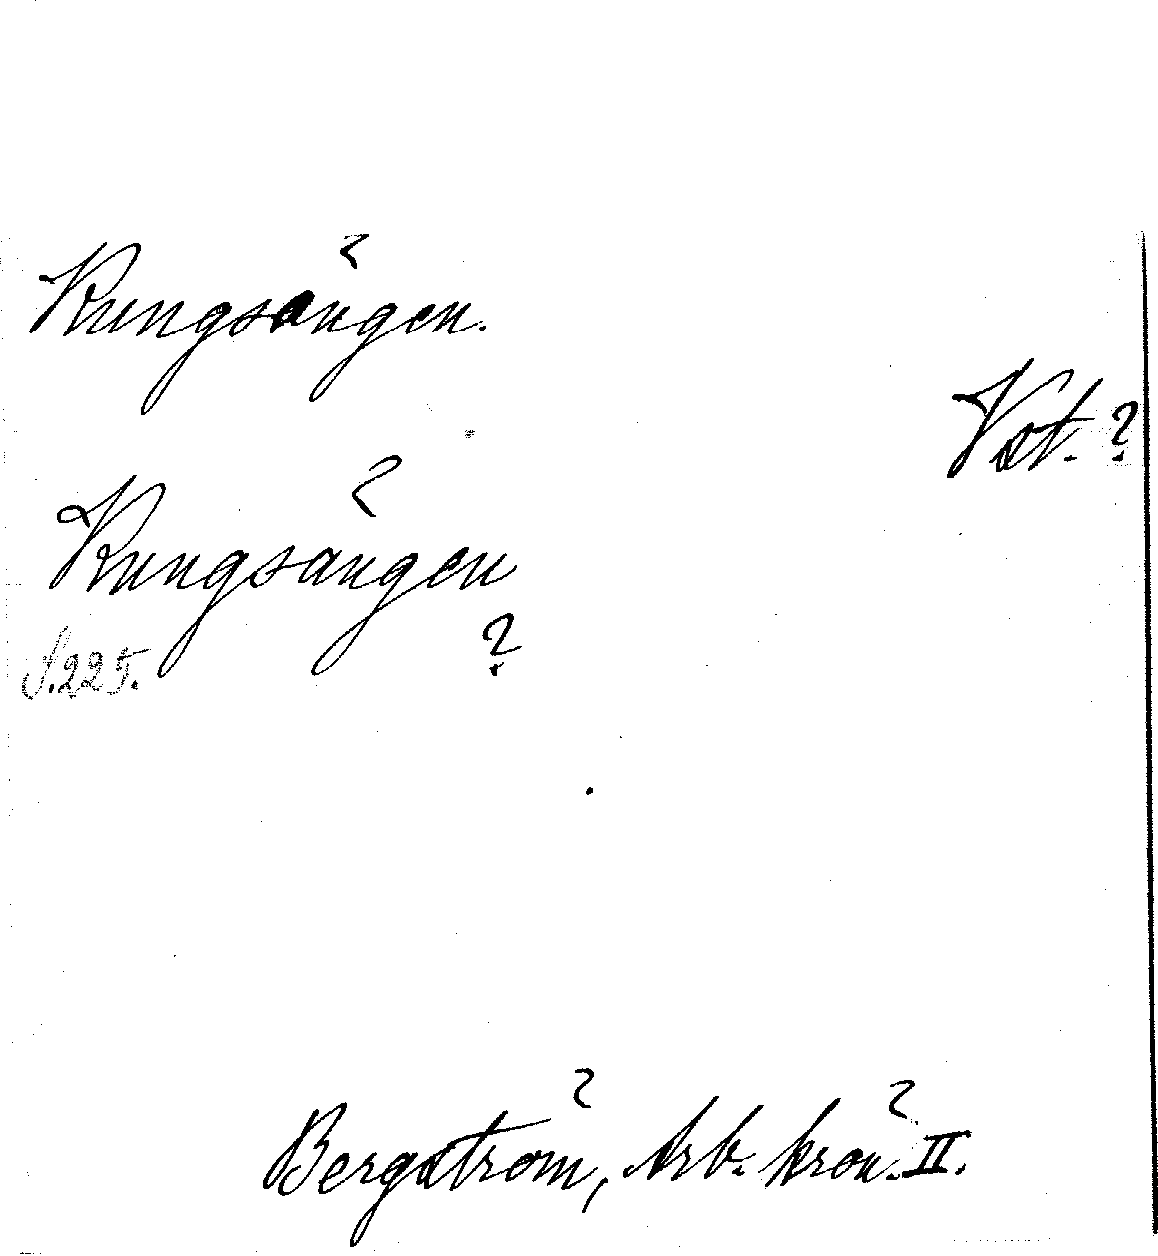 Kungsängen.
Vst. ?
Kungsängen
?
S. 225.
Bergström, Arb. krön. II.